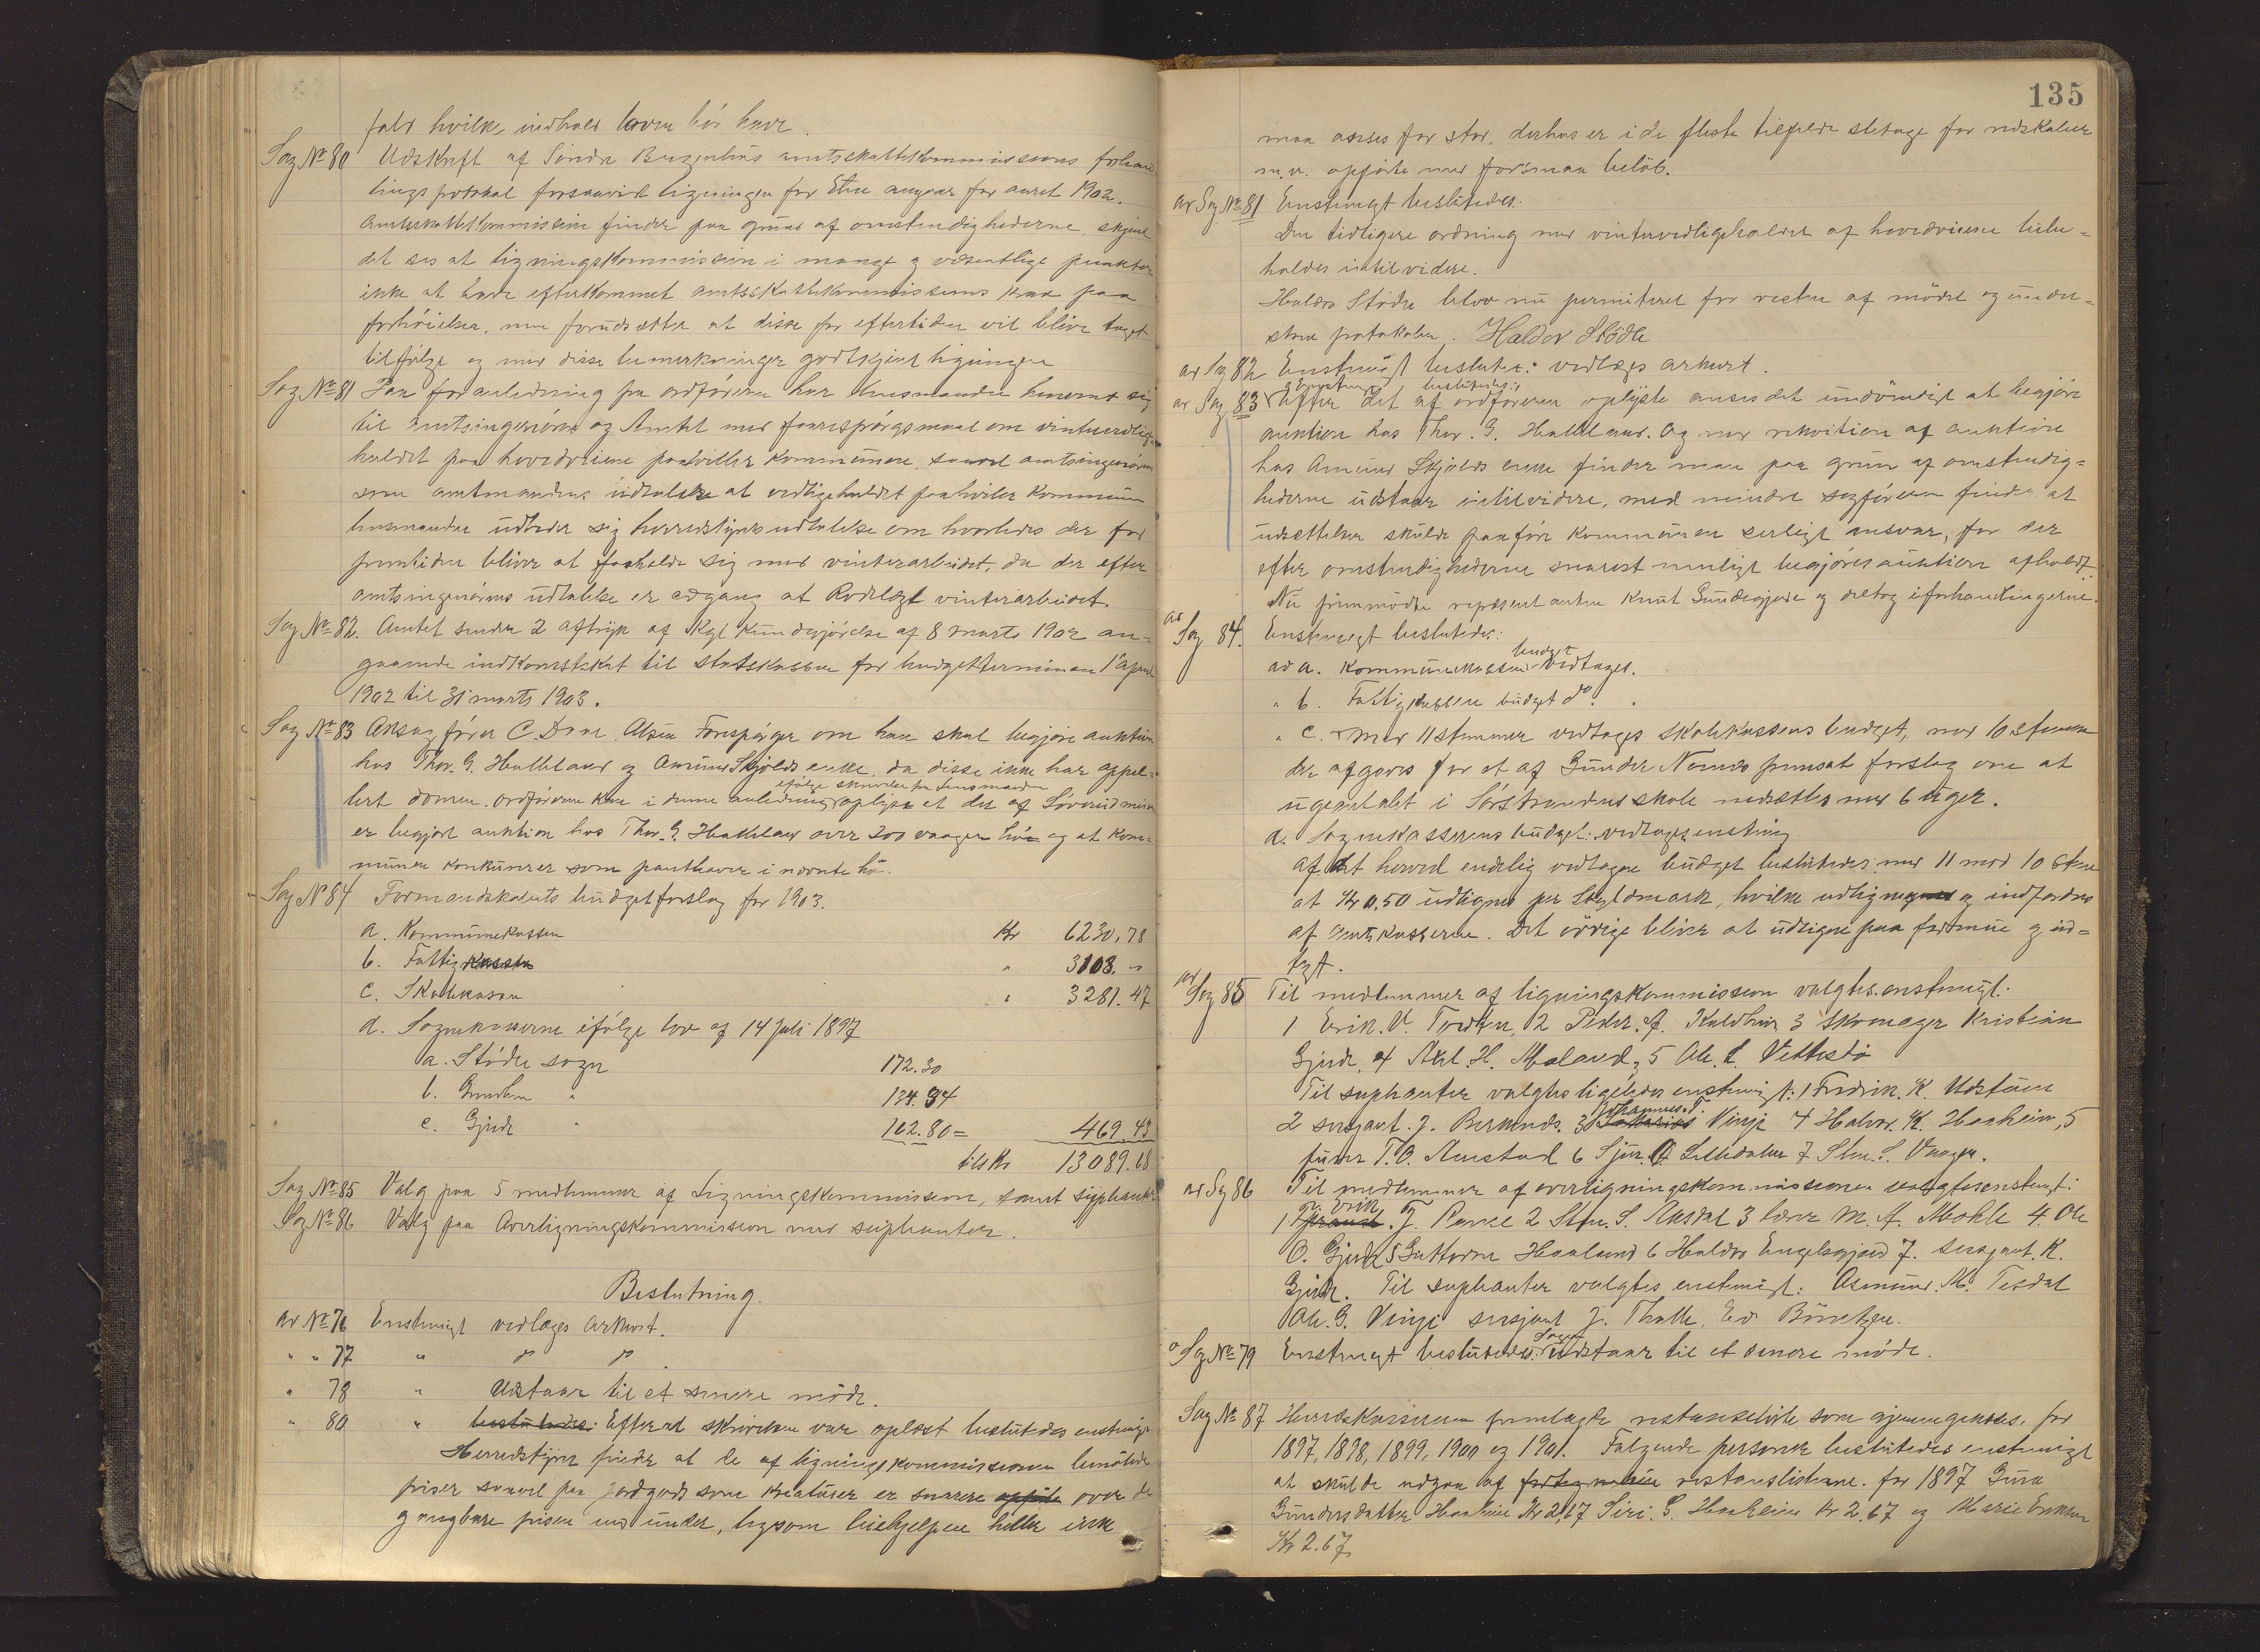 fald hvilke indhold loven bör have.
Sag No 80 Udskrift af Söndre Bergenhus amtsskattekommissions forhand
lingsprotokol forsaavidt ligningen for Etne angaar for aaret 1902.
Amtsskattekommissionen finder paa grund af omstendighederne, skjönt
det ses at ligningskommissionen i mange og vesentlige punkter
ikke at have efterkommet amtsskattekommissionens krav paa
forhöielser, men forudsetter at disse for eftertiden vil blive taget
tilfölge og med disse bemerkninger godkjent ligningen
Sag No 81 Paa foranledning fra ordföreren har lensmanden henvendt sig
til amtsingeniören og Amtet med forespörgsmaal om vintervedlige-
holdet paa hovedveiene paahviler kommunen, saavel amtsingeniören
som amtmanden udtalelse at vedligeholdet paahviler kommunen
lensmanden udbeder sig herredstyrets udtalelse om hvorledes der for
fremtiden bliver at forholde sig med vinterarbeidet, da der efter
amtsingeniörens udtalelse er adgang at Rodelægt vinterarbeidet.
Sag No 82. Amtet sender 2 aftryk af Kgl Kundgjörelse af 8 marts 1902 an-
gaaende indkomstskat til statskassen for budgetterminen 1 april
1902 til 31 marts 1903.
Sag No 83 Aksagförer C. Dom Alsen Forespörger om han skal begjöre auktion
hos Thor. G. Haktland og Amund Skjolds enke, da disse ikke har appel-
ifölge skrivelse fra lensmanden
lert domen. ordföreren kan i denne anledning oplyse at der af Sövereid
er begjört auktion hos Thor. G. Haktland over 200 vaager hö og at kom-
munen konkurrer som panthaver i nævnte hö.
Sag No 84 Formandskabets budgetforslag for 1903.
a. Kommunekassen Kr 6230,78
b. Fattigkassen " 3108. "
c. Skolekassen " 3281.47
d. Sognekasserne ifölge lov af 14 Juli 1897
a. Stödle sogn 172.30
b. Grindhem " 134.34
c. Gjerde " 162.80 = 469.43
tils Kr 13089.68
Sag No 85 Valg paa 5 medlemmer af Ligningskommissionen, samt suplanter
Sag No 86 Valg paa Overligningskommission med suplanter.
Beslutning.
ad No 76 Enstemigt vedlæges arkivet.
" " 77 " " "
" 78 " Udstaar til et senere möde.
" 80 " besluttedes: Efterat skrivelsen var oplæst besluttedes enstemigt
Herredstyret finder at de af ligningskommissionen benöttede
priser saavel paa jordgods som kreaturer er snarere opförte over de
gangbare priser end under, ligesom livehjelpen heller ikke
135
maa ansees for stor, derhos er i de fleste tilfelde slitage for redskaber
m.v. opförte med forsmaa belöb.
ad Sag No 81 Enstemigt besluttedes:
Den tidligere ordning med vintervedligeholdet af hovedveiene bibe-
holdes indtil videre.
Haldor Stödle blev nu permiteret for resten af mödet og under-
skrev protokolen. Haldor Stödle
ad Sag 82 Enstemigt besluttet: vedlæges arkivet.
Enstemigt besluttedes:
ad Sag 83 Efter det af ordföreren oplyste ansees det unödvendigt at begjöre
auktion hos Thor. G. Haktland. Og med rekvisition af auktion
hos Amund Skjolds enke finder man paa grund af omstendig-
hederne udstaar indtilvidere, med mindre sagföreren finder at
udsettelsen skulde paaföre kommunen serligt ansvar, for der
efter omstendighederne snarest muligt begjöres auktion afholdt.
Nu fremmödte representanten Knut Gundegjerde og deltog i forhandlingerne.
ad Sag 84. Enstemigt besluttedes:
ad a. Kommunekassens budget vedtages.
" b. Fattigkassens budget do.
" c. Med 11 stemmer vedtages skolekassens budget, mod 10 stemmer
der afgaves for et af Gunder Nernes fremsat forslag om at
ugeantalet i Sörstrandens skole nedsættes med 6 uger.
d. Sognekassernes budget: vedtages enstemig.
Af det herved endelig vedtagne budget besluttedes med 11 mod 10 stem
at Kr 0,50 udlignes per Skyldmark, hvilke udlignes og indfordres
af amtskasserne. Det övrige bliver at udligne paa formue og ind-
tægt.
ad Sag 85 Til medlemmer af ligningskommission valgtes enstemigt:
1 Erik. V. Tordsen, 2 Peder. A. Kaldheim 3 Skomager Kristian
Gjerde, 4 Nal. H. Moland, 5 Ole. L Vettestö
Til suplanter valgtes ligeledes enstemigt: 1 Fredrik. K. Udstuen
2 sersjant. J. Berknes. 3 Johannes. T. Vinje 4 Halvor. K. Haaheim, 5
furer T. O. Aurstad 6 Sjur. O Lilledalen 7 Sten. S. Vaagen.
ad Sag 86 Til medlemmer af overligningskommissionen valgtes enstemigt:
1 Erik. T. Perce 2 Sten. S. Austdal 3 lærer M. A. Mokle 4. Ole
O. Gjerde 5 Guttorm Haaland 6 Haldor Engelsgjerd 7. sersjant. K.
Gjerde. Til suplanter valgtes enstemigt: Asmund. M. Tesdal
Ole. G. Vinje sersjant J. Thalle, Ed Börretzen.
Sag No 79 Enstemigt besluttedes: Sagen udstaar til et senere möde.
Sag No 87 Herredskassereren fremlagde restanseliste som gjennemgaaes, for
1897, 1898, 1899, 1900 og 1901. Fölgende personer besluttedes enstemigt
at skulde udgaa af restanslisterne. for 1897 Guro
Gundersdatter Haaheim Kr 2,67 Siri. S. Haaheim kr 2.67 og Marie Eriksen
Kr 2.67